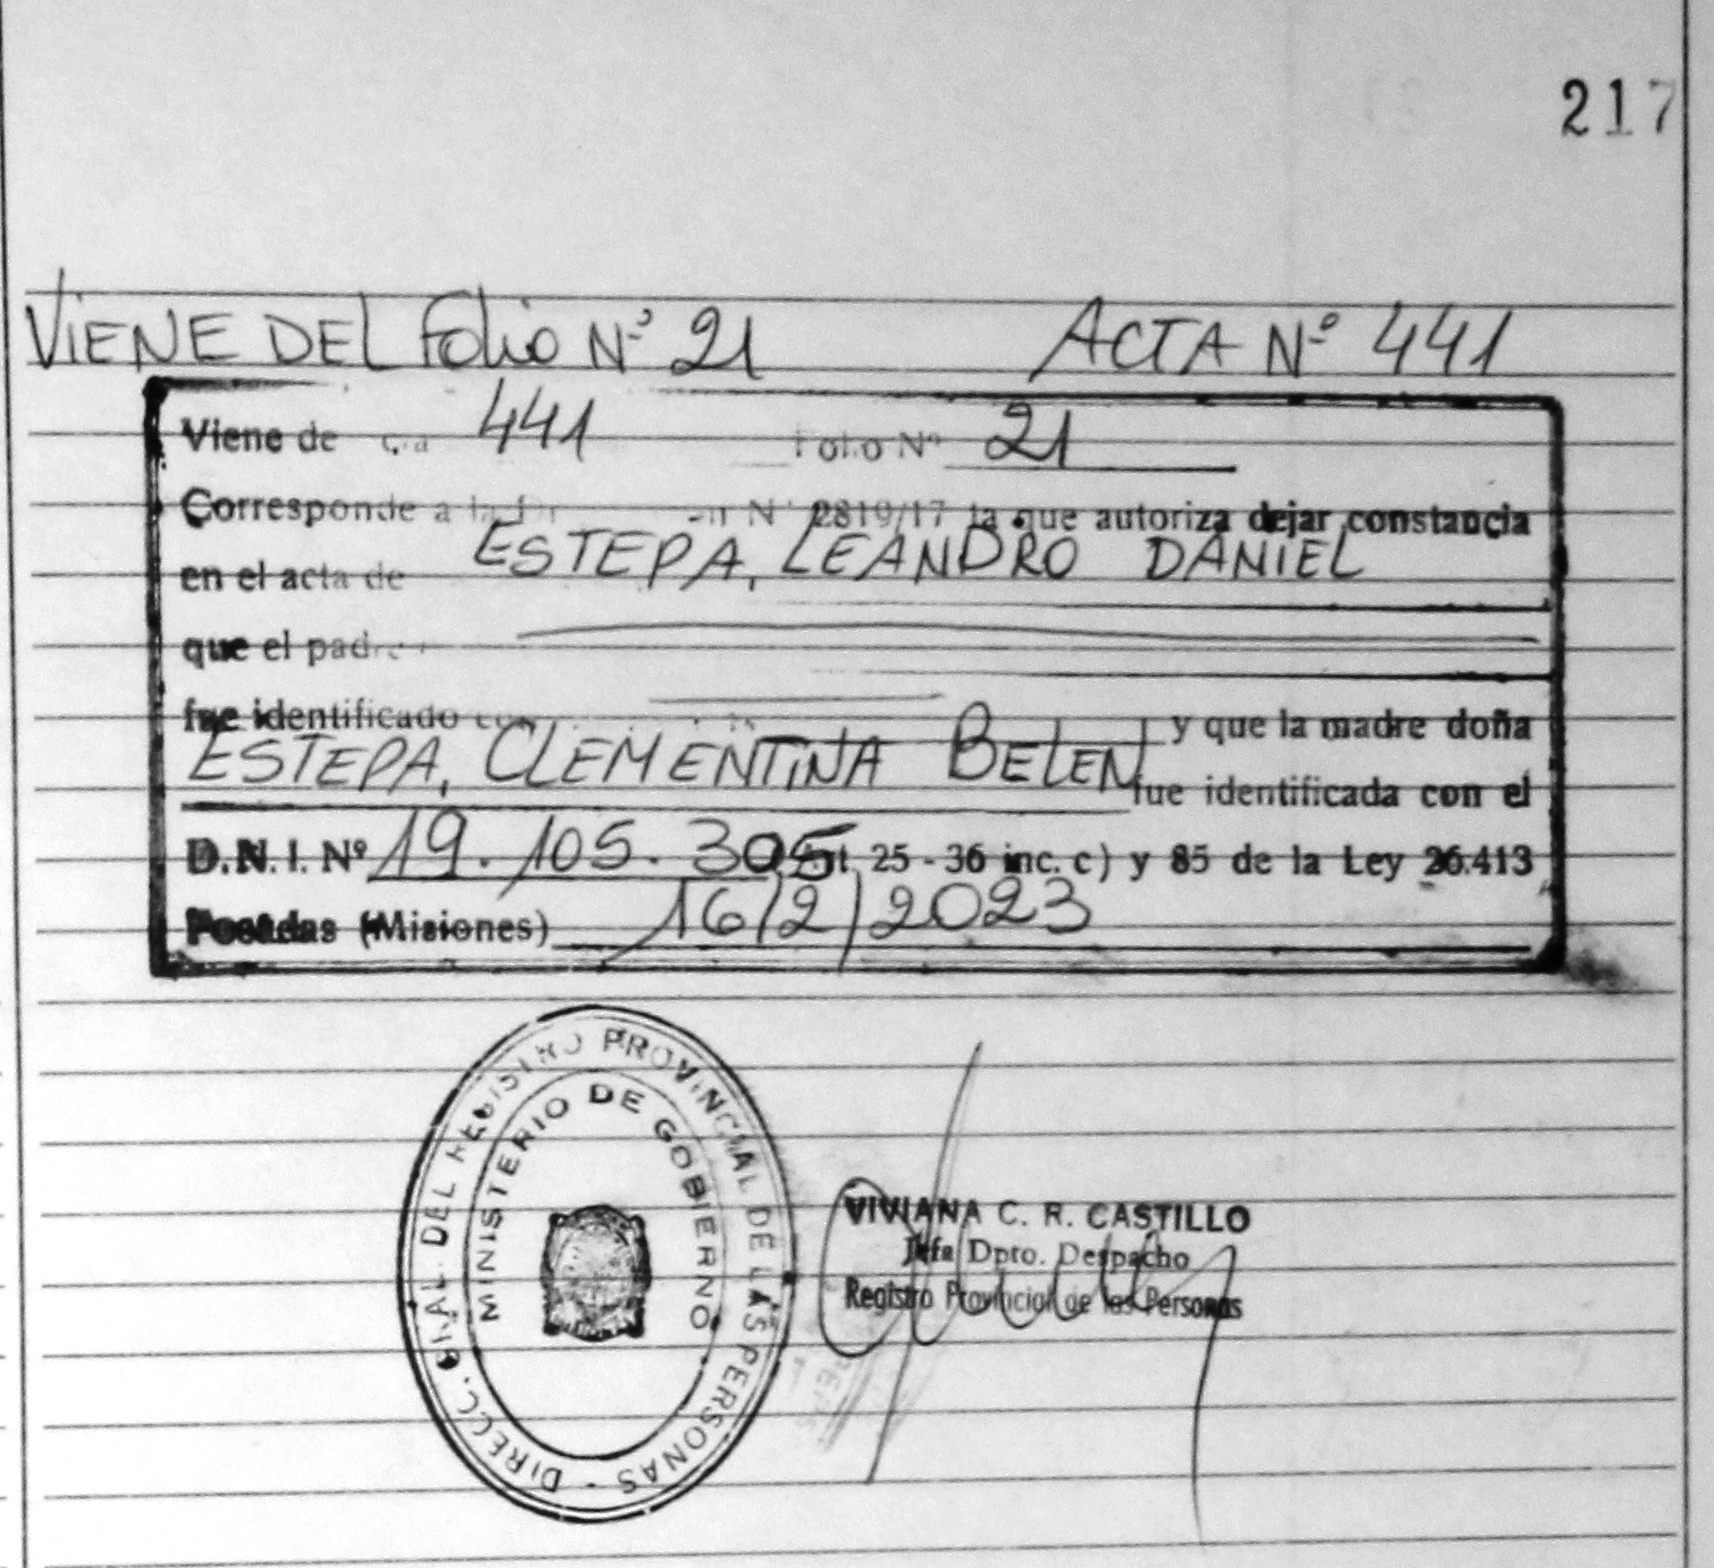 217
VIENE DEL Folio Nº 21 ACTA Nº 441
Viene de 441 Folio Nº 21
Corresponde a la Nº 2819/17 la que autoriza dejar constancia
en el acta de ESTEPA, LEANDRO DANIEL
que el padre
fue identificado con y que la madre doña
ESTEPA, CLEMENTINA BELEN fue identificada con el
D.N.I. Nº 19.105.305 Art. 25 - 36 inc. c) y 85 de la Ley 26.413
Posadas (Misiones) 16/2/2023
DIRECC. GRAL. DEL REGISTRO PROVINCIAL DE LAS PERSONAS -
MINISTERIO DE GOBIERNO
VIVIANA C. R. CASTILLO
Jefa Dpto. Despacho
Registro Provincial de las Personas